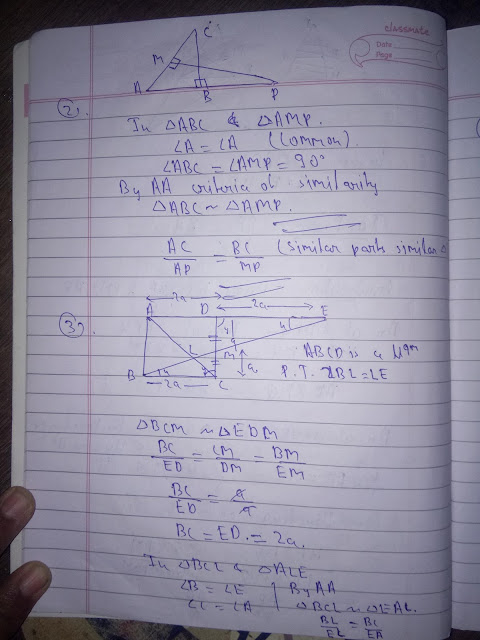 classmate
Date
Page
C
M
A
B
P
2).
In △ABC & △AMP.
∠A = ∠A (Common).
∠ABC = ∠AMP = 90°
By AA criteria of similarity
△ABC ~ △AMP.
AC/AP = BC/MP (Similar parts similar △
3).
2a
2a
A D E
L
M
a
a
B C
2a
ABCD is a ||gm
P.T. 2BL = LE
△BCM ~ △EDM
BC/ED = CM/DM = BM/EM
BC/ED = a/a
BC = ED = 2a.
In △BCL & △ALE
∠B = ∠E
∠L = ∠A
By AA
△BCL ~ △EAL.
BL/EL = BC/EA